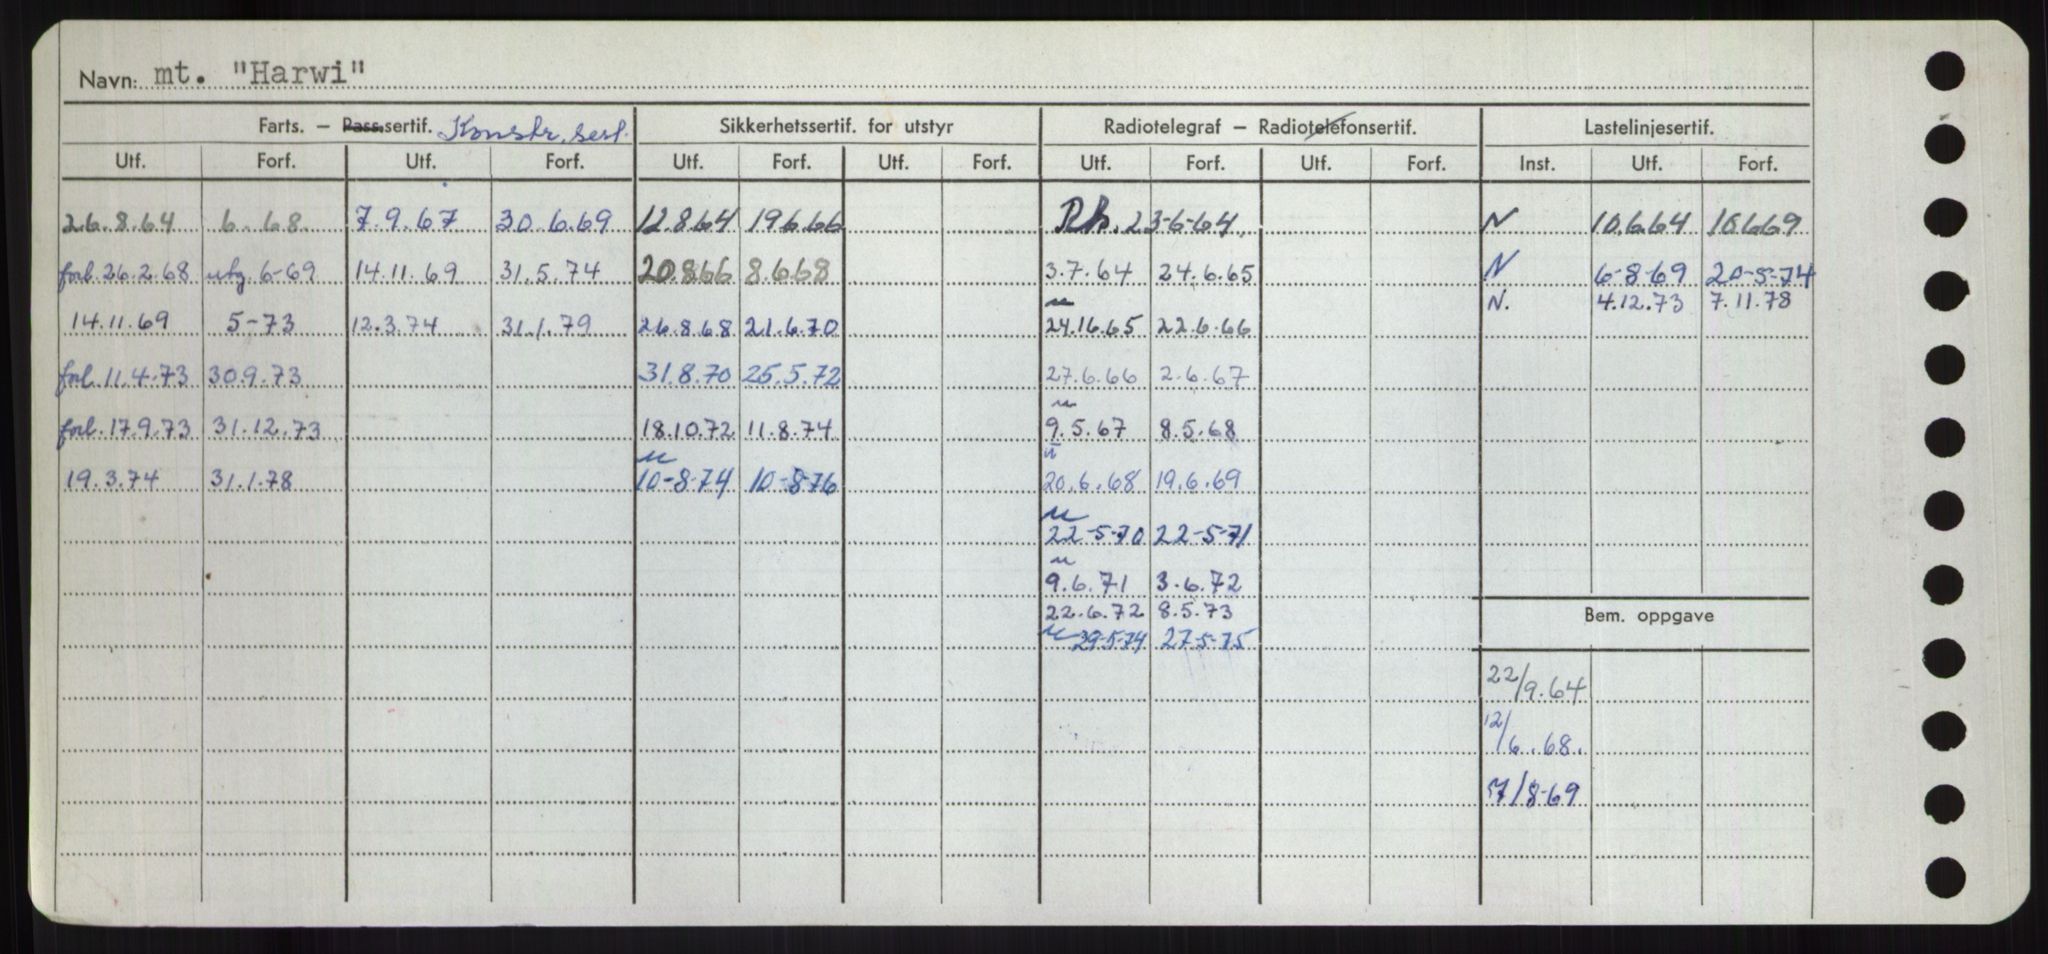 Navn: mt. "Harwi"
Farts. – Pass.sertif. Konstr. sert. Sikkerhetssertif. for utstyr Radiotelegraf – Radiotelefonsertif. Lastelinjesertif.
Utf. Forf. Utf. Forf. Utf. Forf. Utf. Forf. Utf. Forf. Utf. Forf. Inst. Utf. Forf.
26.8.64 6. 68. 7.9.67 30.6.69 12.8.64 19.6.66 23-6-64. N 10.6.64 10.6.69
forl. 26.2.68 utg. 6-69 14.11.69 31.5.74 20.8.66 8.6.68 3.7.64 24.6.65 N 6-8-69 20-5-74
N. 4.12.73 7.11.78
14.11.69 5-73 12.3.74 31.1.79 26.8.68 21.6.70 24.16.65 22.6.66
forl. 11.4.73 30.9.73 31.8.70 25.5.72 27.6.66 2.6.67
forl. 17.9.73 31.12.73 18.10.72 11.8.74 9.5.67 8.5.68
19.3.74 31.1.78 10-8-74 10-8-76 20.6.68 19.6.69
22-5-70 22-5-71
9.6.71 3.6.72
22.6.72 8.5.73
Bem. oppgave
29-5-74 27-5-75
22/9.64
12/6.68.
7/8-69